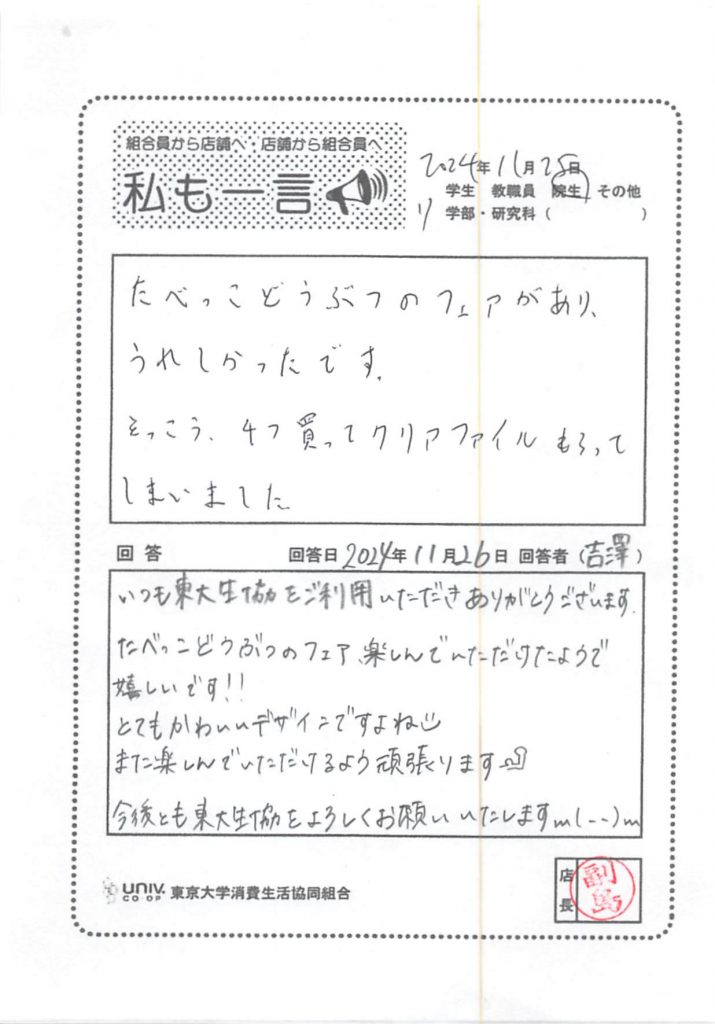 組合員から店舗へ・店舗から組合員へ
私も一言
2024年11月25日
学生 教職員 院生 その他
学部・研究科( )
たべっこどうぶつのフェアがあり、
うれしかったです。
そっこう、4つ買ってクリアファイルもらって
しまいました
回答 回答日2024年11月26日 回答者(吉澤)
いつも東大生協をご利用いただきありがとうございます。
たべっこどうぶつのフェア、楽しんでいただけたようで
嬉しいです!!
とてもかわいいデザインですよね
また楽しんでいただけるよう頑張ります
今後とも東大生協をよろしくお願いいたしますm(--)m
UNIV. CO-OP 東京大学消費生活協同組合
店長
副島